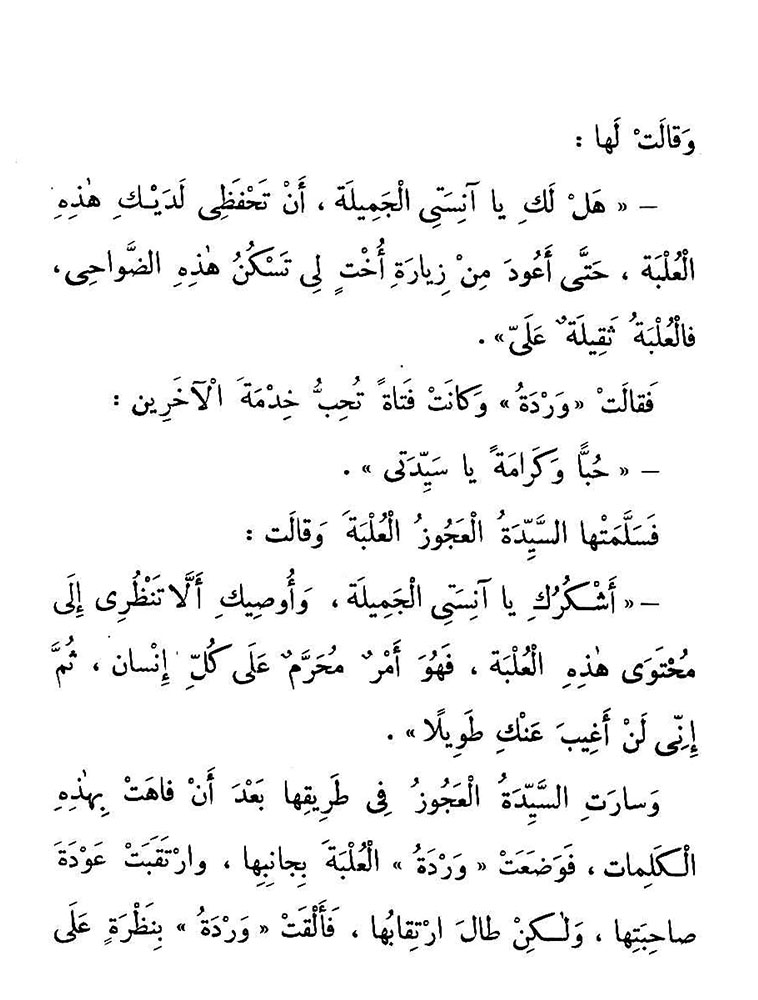 وَقالَتْ لَها :
– « هَلْ لَكِ يا آنِسَتِي الْجَمِيلَة ، أَنْ تَحْفَظِى لَدَيْكِ هٰذِهِ
الْعُلْبَة ، حَتَّى أَعُودَ مِنْ زِيارَةِ أُخْتٍ لِى تَسْكُنُ هٰذِهِ الضَّواحِى،
فالْعُلْبَةُ ثَقِيلَةٌ عَلَىّ» .
فَقالَتْ «وَرْدَةُ» وَكانَتْ فَتاةً تُحِبُّ خِدْمَةَ الْآخَرِين :
– « حُبًّا وَكَرامَةً يا سَيِّدَتى » .
فَسَلَّمَتْها السَّيِّدَةُ الْعَجُوزُ الْعُلْبَةَ وَقالَت :
–« أَشْكُرُكِ يا آنِسَتِي الْجَمِيلَة ، وَأُوصِيكِ أَلَّا تَنْظُرِى إِلَى
مُحْتَوَى هٰذِهِ الْعُلْبَة ، فَهُوَ أَمْرٌ مُحَرَّمٌ عَلَى كُلِّ إِنْسان ، ثُمَّ
إِنِّى لَنْ أَغِيبَ عَنْكِ طَوِيلًا» .
وَسارَتِ السَّيِّدَةُ الْعَجُوزُ فِى طَرِيقِها بَعْدَ أَنْ فاهَتْ بِهٰذِهِ
الْكَلِمات ، فَوَضَعَتْ « وَرْدَةُ » الْعُلْبَةَ بِجانِبِها ، وارْتَقَبَتْ عَوْدَةَ
صاحِبَتِها ، وَلٰكِنْ طالَ ارْتِقابُها ، فَأَلْقَتْ « وَرْدَةُ » بِنَظْرَةٍ عَلَى